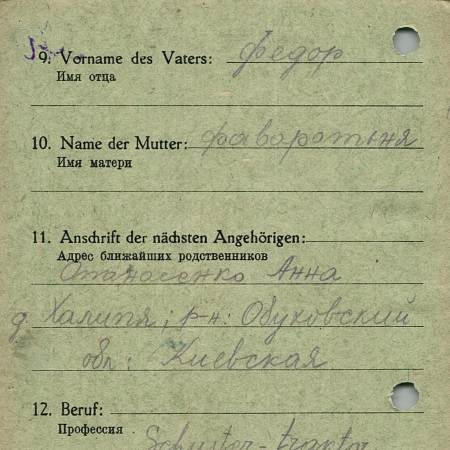 9. Vorname des Vaters: федор
Имя отца
10. Name der Mutter: фаваратьня
Имя матери
11. Anschrift der nächsten Angehörigen:
Адрес ближайших родственников
Опанасенко Анна
д. Халипя; р-н: Обуховский
обл: Киевская
12. Beruf:
Профессия Schuster-traktor